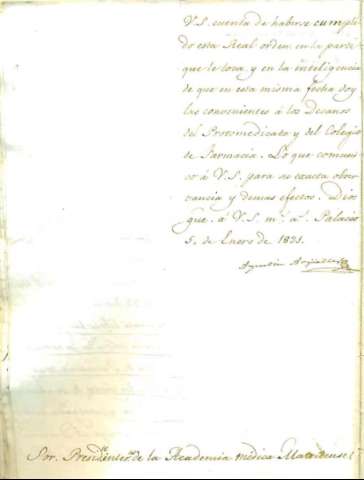 V.S. cuenta de haberse cumpli-
do esta Real orden en la parte
que le toca, y en la inteligencia
de que en esta misma fecha doy
las convenientes á los Decanos
del Protomedicato y del Colegio
de Farmacia. Lo que comuni-
co á V.S. para su exacta obser-
vancia y demas efectos. Dios
gue. á V.S. m.s a.s Palacio
5. de Enero de 1821.
Agustin Argüelles
Sor. Presidente de la Academia médica Matritense